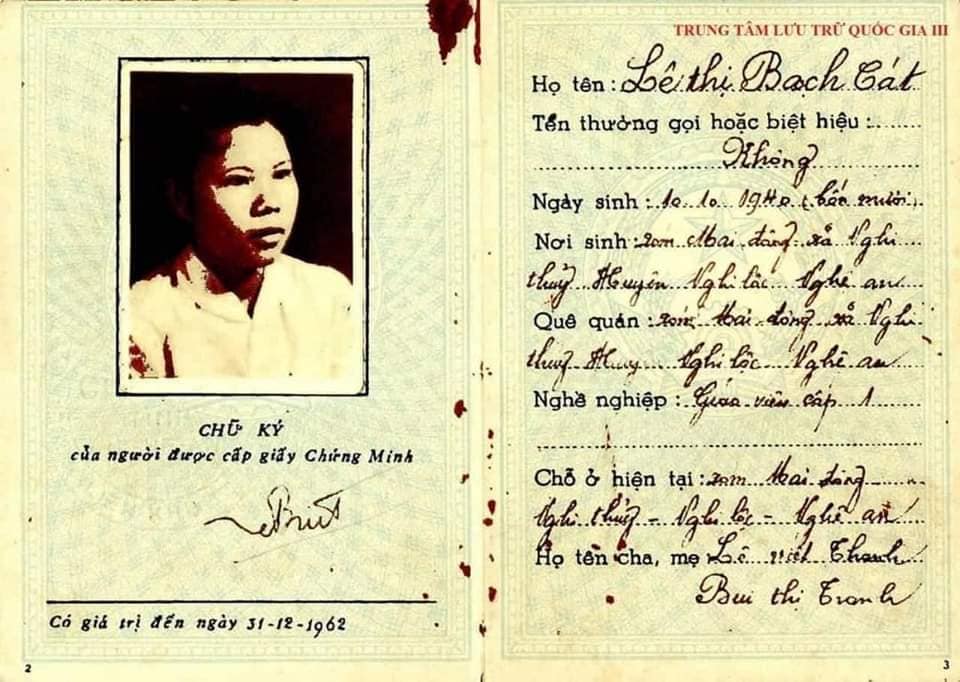 CHỮ KÝ
của người được cấp giấy Chứng Minh
Có giá trị đến ngày 31-12-1962
2
TRUNG TÂM LƯU TRỮ QUỐC GIA III
Họ tên : Lê thị Bạch Cát
Tên thường gọi hoặc biệt hiệu :
Không
Ngày sinh : 10.10.1940 (bốn mươi)
Nơi sinh : xóm Mai đông xã Nghi
thuỷ Huyện Nghi lộc Nghệ an
Quê quán : xóm Mai đông xã Nghi
thuỷ Huyện Nghi lộc Nghệ an
Nghề nghiệp : Giáo viên cấp 1
Chỗ ở hiện tại : xóm Mai đông
Nghi thuỷ - Nghi lộc - Nghệ an
Họ tên cha, mẹ Lê viết Thanh
Bùi thị Tranh
3